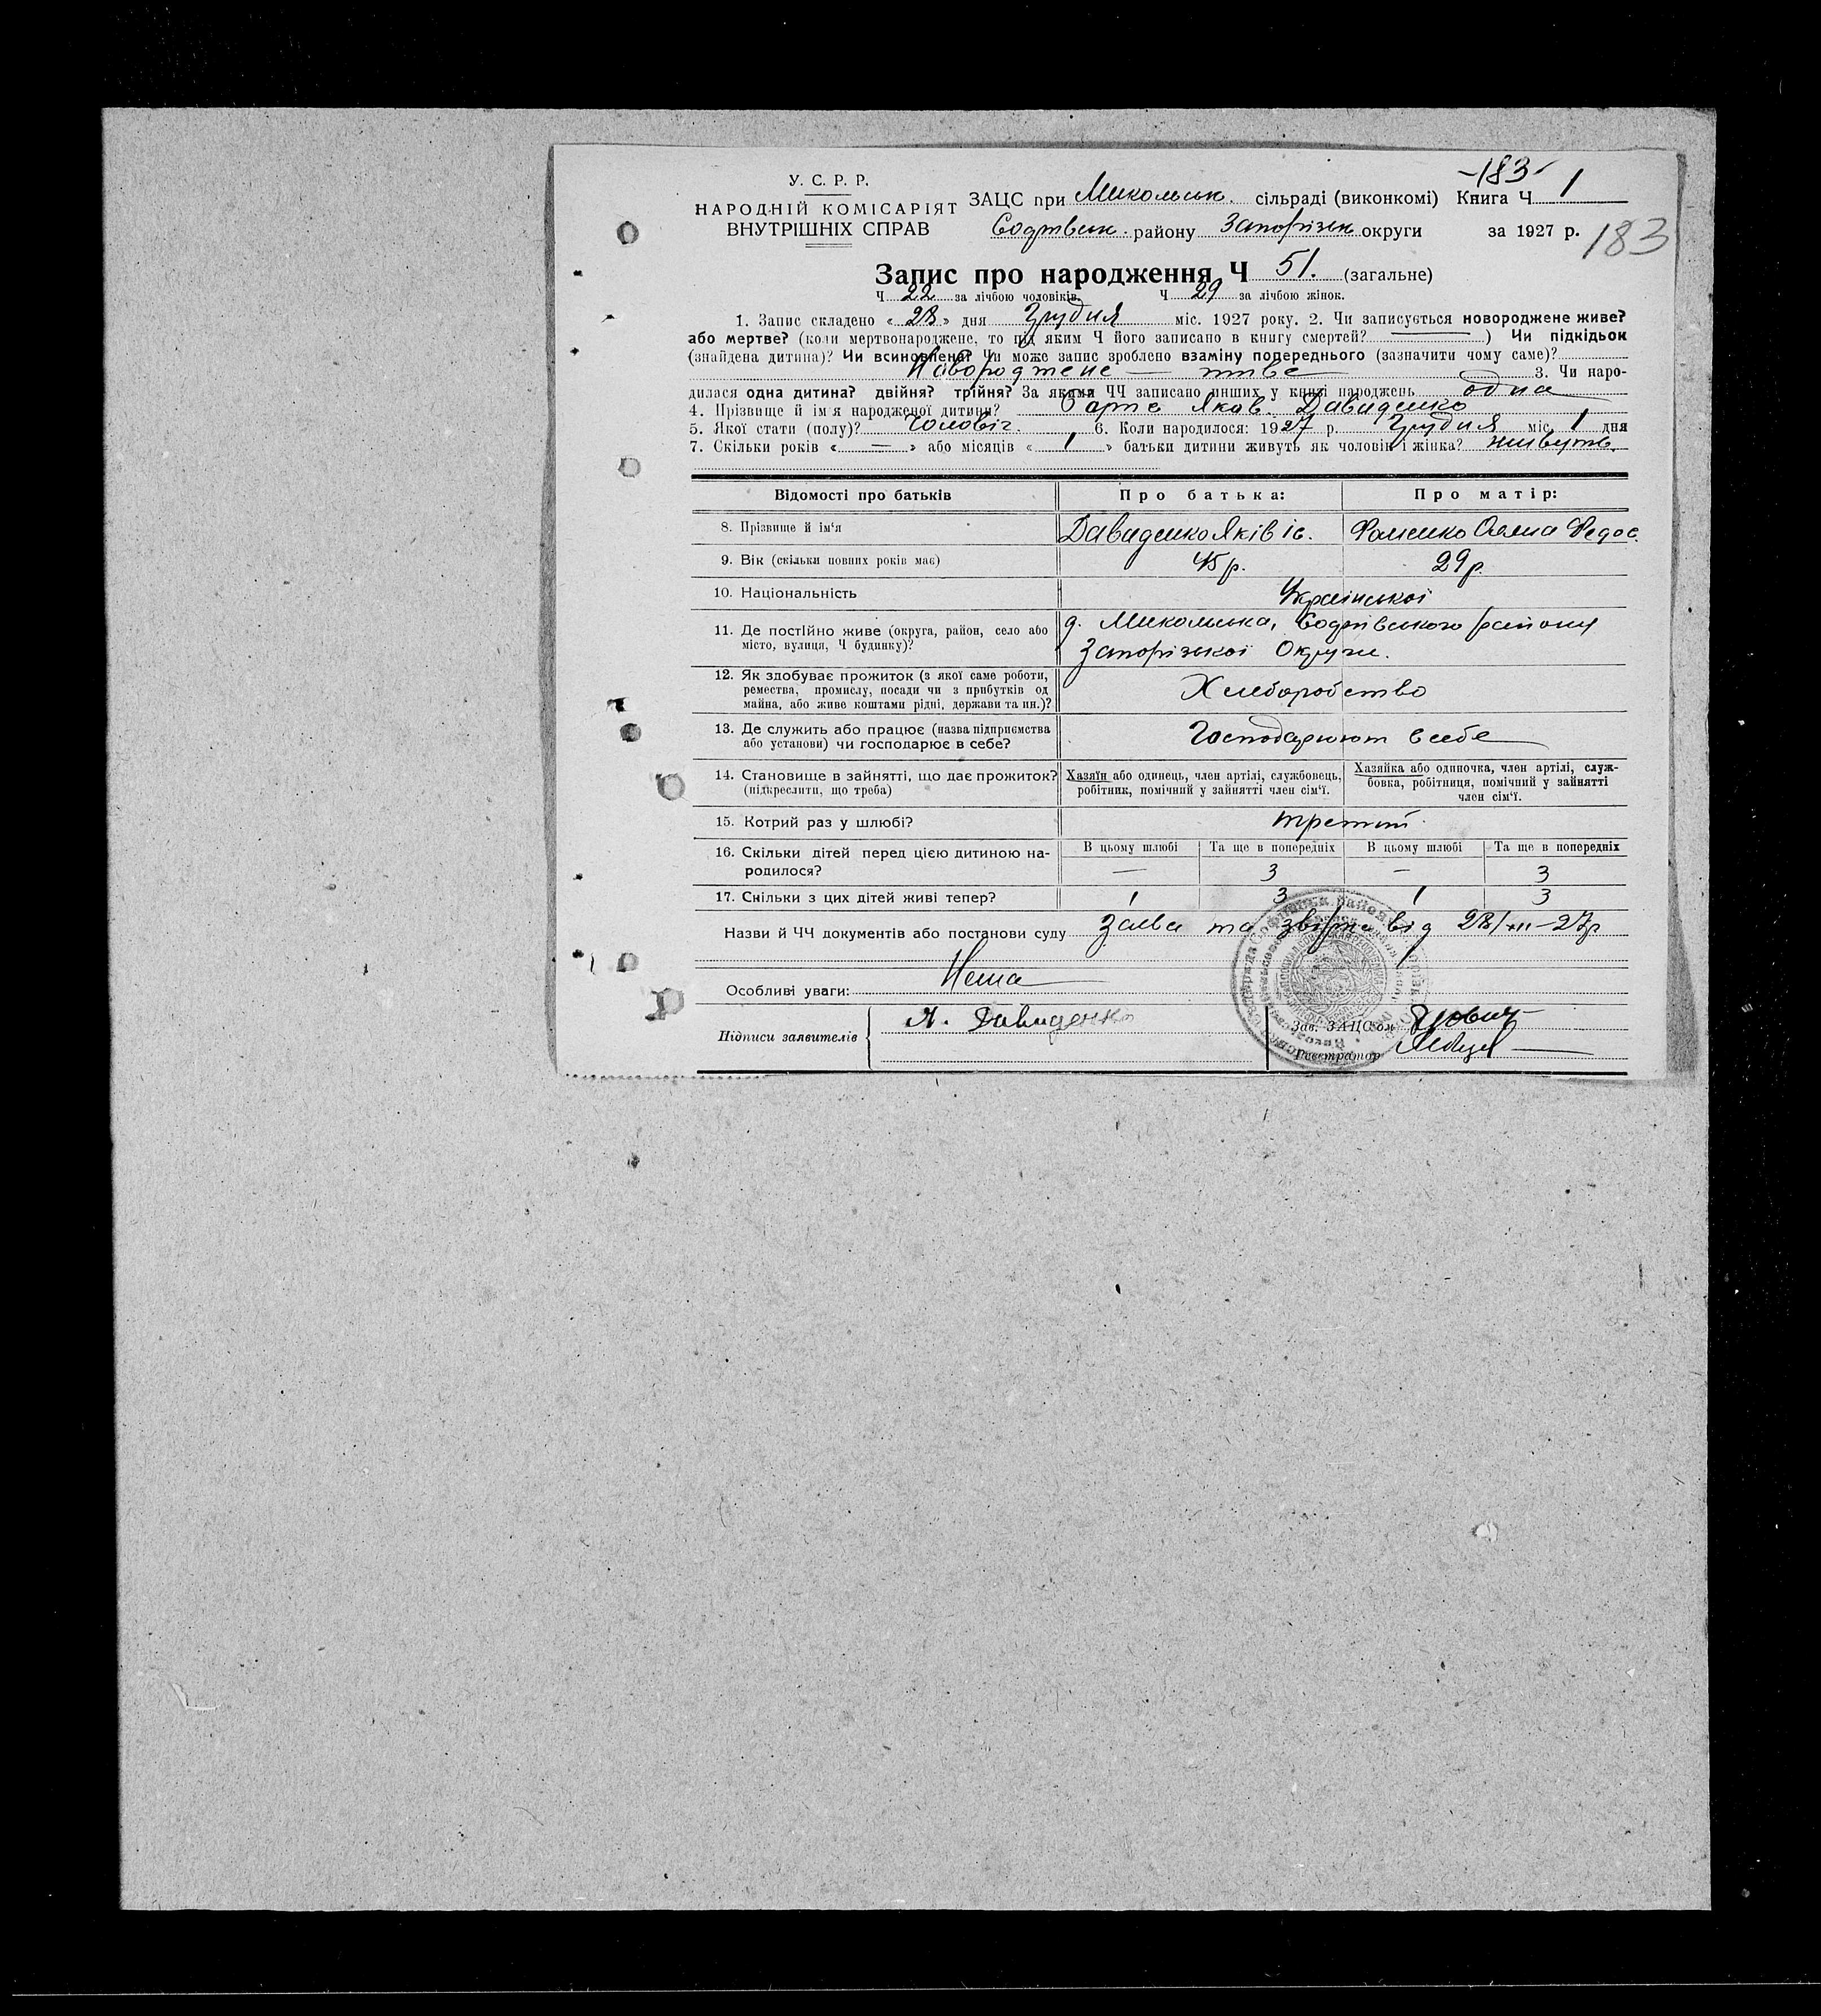 -183-
У. С. Р. Р.
НАРОДНІЙ КОМІСАРІЯТ
ВНУТРІШНІХ СПРАВ
ЗАЦС при Микольськ. сільраді (виконкомі) Книга Ч 1
району Запорізьк округи за 1927 р. 183
Запис про народження Ч 51. (загальне)
Ч 22 за лічбою чоловіків. Ч 29 за лічбою жінок.
1. Запис складено « 28 » дня Грудня міс. 1927 року. 2. Чи записується новороджене живе?
або мертве? (коли мертвонароджене, то під яким Ч його записано в книгу смертей? ) Чи підкідьок
(знайдена дитина)? Чи всиновлена? Чи може запис зроблено взаміну попереднього (зазначити чому саме)?
Новороджене — живе 3. Чи наро-
дилася одна дитина? двійня? трійня? За якими ЧЧ записано инших у книзі народжень одна
4. Прізвище й ім'я народженої дитини? Яков. Давиденко
5. Якої стати (полу)? Чоловіч. 6. Коли народилося: 1927 р. Грудня міс. 1 дня
7. Скільки років « — » або місяців « 1 » батьки дитини живуть як чоловік і жінка? живуть
Відомості про батьків Про батька: Про матір:
8. Прізвище й ім'я Давиденко Яків Іс. Фоменко Федос.
9. Вік (скільки повних років має) 45 р. 29 р.
10. Національність Української
11. Де постійно живе (округа, район, село або д. Микольська, району
місто, вулиця, Ч будинку)? Запорізької Округи.
12. Як здобуває прожиток (з якої саме роботи,
ремества, промислу, посади чи з прибутків од Хлеборобство
майна, або живе коштами рідні, держави та ин.)?
13. Де служить або працює (назва підприємства Господарюют в себе
або установи) чи господарює в себе?
14. Становище в зайнятті, що дає прожиток? Хазяїн або одинець, член артілі, службовець, Хазяйка або одиночка, член артілі, служ-
(підкреслити, що треба) робітник, помічний у зайнятті член сім'ї. бовка, робітниця, помічний у зайнятті
член сім'ї.
15. Котрий раз у шлюбі? третій
16. Скільки дітей перед цією дитиною на- В цьому шлюбі Та ще в попередніх В цьому шлюбі Та ще в попередніх
родилося? — 3 — 3
17. Скільки з цих дітей живі тепер? 1 3 1 3
Назви й ЧЧ документів або постанови суду Заява та від 28/XII-27р
Особливі уваги: Нема
Підписи заявителів Я. Давиденко Зав. ЗАЦС'ом
Реєстратор